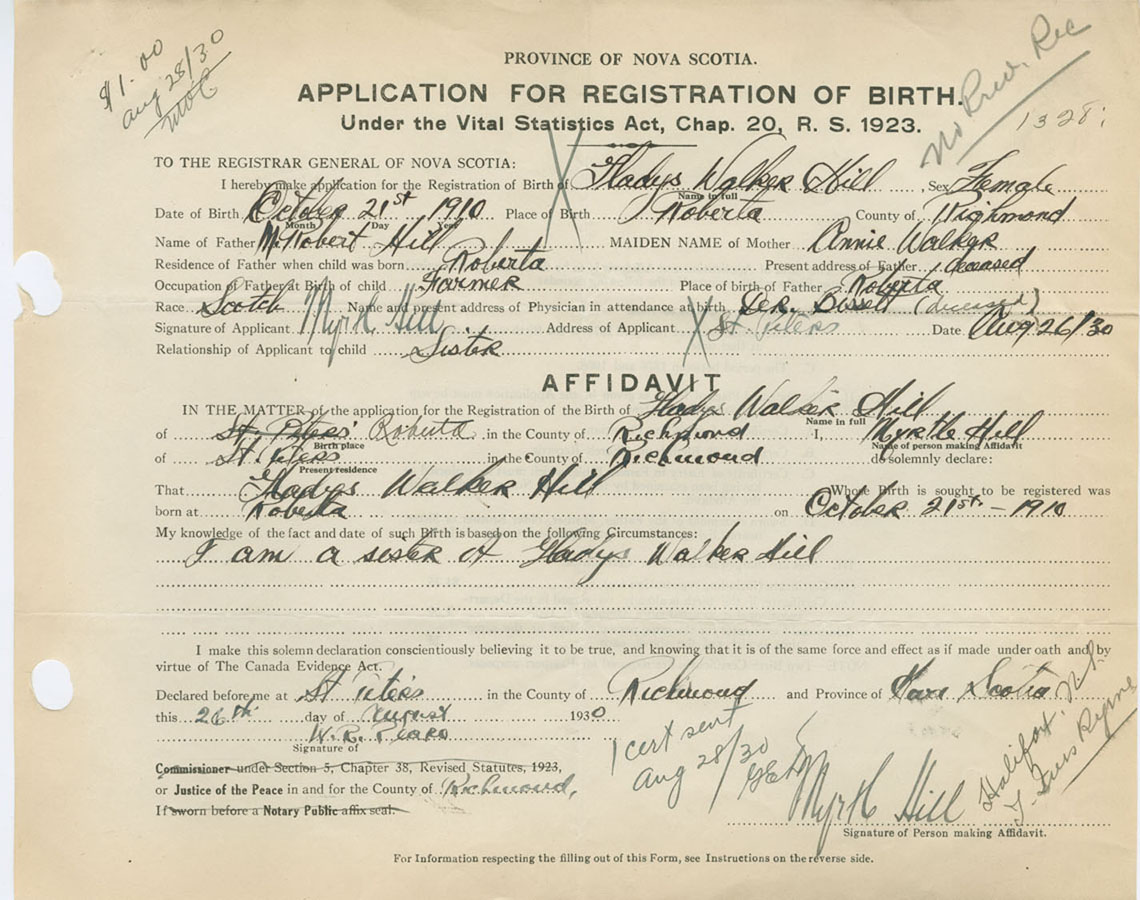 $1.00
Aug 28/30
No Prev. Rec
1328
PROVINCE OF NOVA SCOTIA.
APPLICATION FOR REGISTRATION OF BIRTH.
Under the Vital Statistics Act, Chap. 20, R. S. 1923.
TO THE REGISTRAR GENERAL OF NOVA SCOTIA:
I hereby make application for the Registration of Birth of Gladys Walker Hill, Sex Female
Name in full
Date of Birth October 21st 1910 Place of Birth Roberta County of Richmond
Month Day Year
Name of Father Robert Hill MAIDEN NAME of Mother Annie Walker
Residence of Father when child was born Roberta Present address of Father deceased
Occupation of Father at Birth of child Farmer Place of birth of Father Roberta
Race Scotch Name and present address of Physician in attendance at birth Bissett (deceased)
Signature of Applicant Myrtle Hill Address of Applicant St. Peters Date Aug 26/30
Relationship of Applicant to child Sister
AFFIDAVIT
IN THE MATTER of the application for the Registration of the Birth of Gladys Walker Hill
Name in full
of St. Peters' Roberta in the County of Richmond I, Myrtle Hill
Birth place Name of person making Affidavit
of St. Peters in the County of Richmond do solemnly declare:
Present residence
That Gladys Walker Hill Whose Birth is sought to be registered was
born at Roberta on October 21st - 1910
My knowledge of the fact and date of such Birth is based on the following Circumstances:
I am a sister of Gladys Walker Hill
I make this solemn declaration conscientiously believing it to be true, and knowing that it is of the same force and effect as if made under oath and by
virtue of The Canada Evidence Act.
Declared before me at St. Peters in the County of Richmond and Province of Nova Scotia
this 26th day of August 1930
W. R.
Signature of
Commissioner under Section 5, Chapter 38, Revised Statutes, 1923,
or Justice of the Peace in and for the County of Richmond,
If sworn before a Notary Public affix seal.
1 cert sent
Aug 28/30
Halifax, N.S.
Myrtle Hill
Signature of Person making Affidavit.
For Information respecting the filling out of this Form, see Instructions on the reverse side.